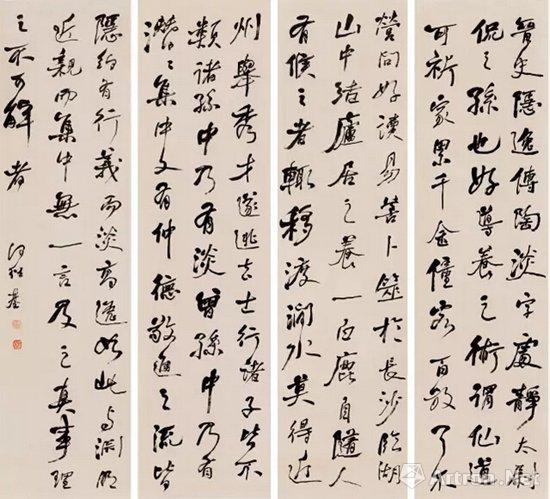 晉史隱逸傳陶淡字處靜太尉
侃之孫也好導養之術謂仙道
可祈家累千金僮客百數了不
營問好讀易善卜筮於長沙臨湘
山中結廬居之養一白鹿自隨人
有候之者輒移渡澗水莫得近
州舉秀才遂逃去士行諸子皆不
類諸孫中乃有淡曾孫中乃有
潛〻集中又有仲德敬遠之流皆
隱約有行義而淡高逸如此與淵明
近親而集中無一言及之真事理
之不可解者
何紹基
Artron.Net